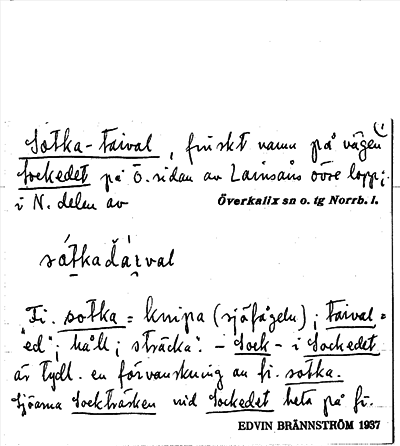 1
Sotka-taival, finskt namn på vägen
Sockedet på Ö. sidan av Lainsåns övre lopp;
i N. delen av Överkalix sn o. tg Norrb. l.
sátkadái̯val
Fi. sotka = knipa (sjöfågeln); taival =
"ed"; håll; sträcka. – Sock- i Sockedet
är tydl. en förvanskning av fi. sotka.
Sjöarna Sockträsken vid Sockedet heta på fi.
EDVIN BRÄNNSTRÖM 1937